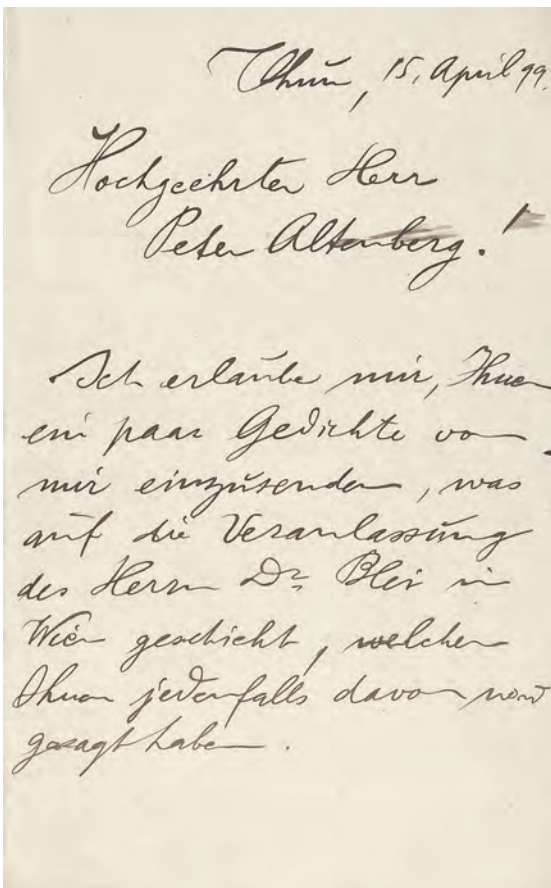 Thun, 15. April 99.
Hochgeehrter Herr
Peter Altenberg!
Ich erlaube mir, Ihnen
ein paar Gedichte von
mir einzusenden, was
auf die Veranlassung
des Herrn Dr. Blei in
Wien geschieht, welcher
Ihnen jedenfalls davon wird
gesagt haben.